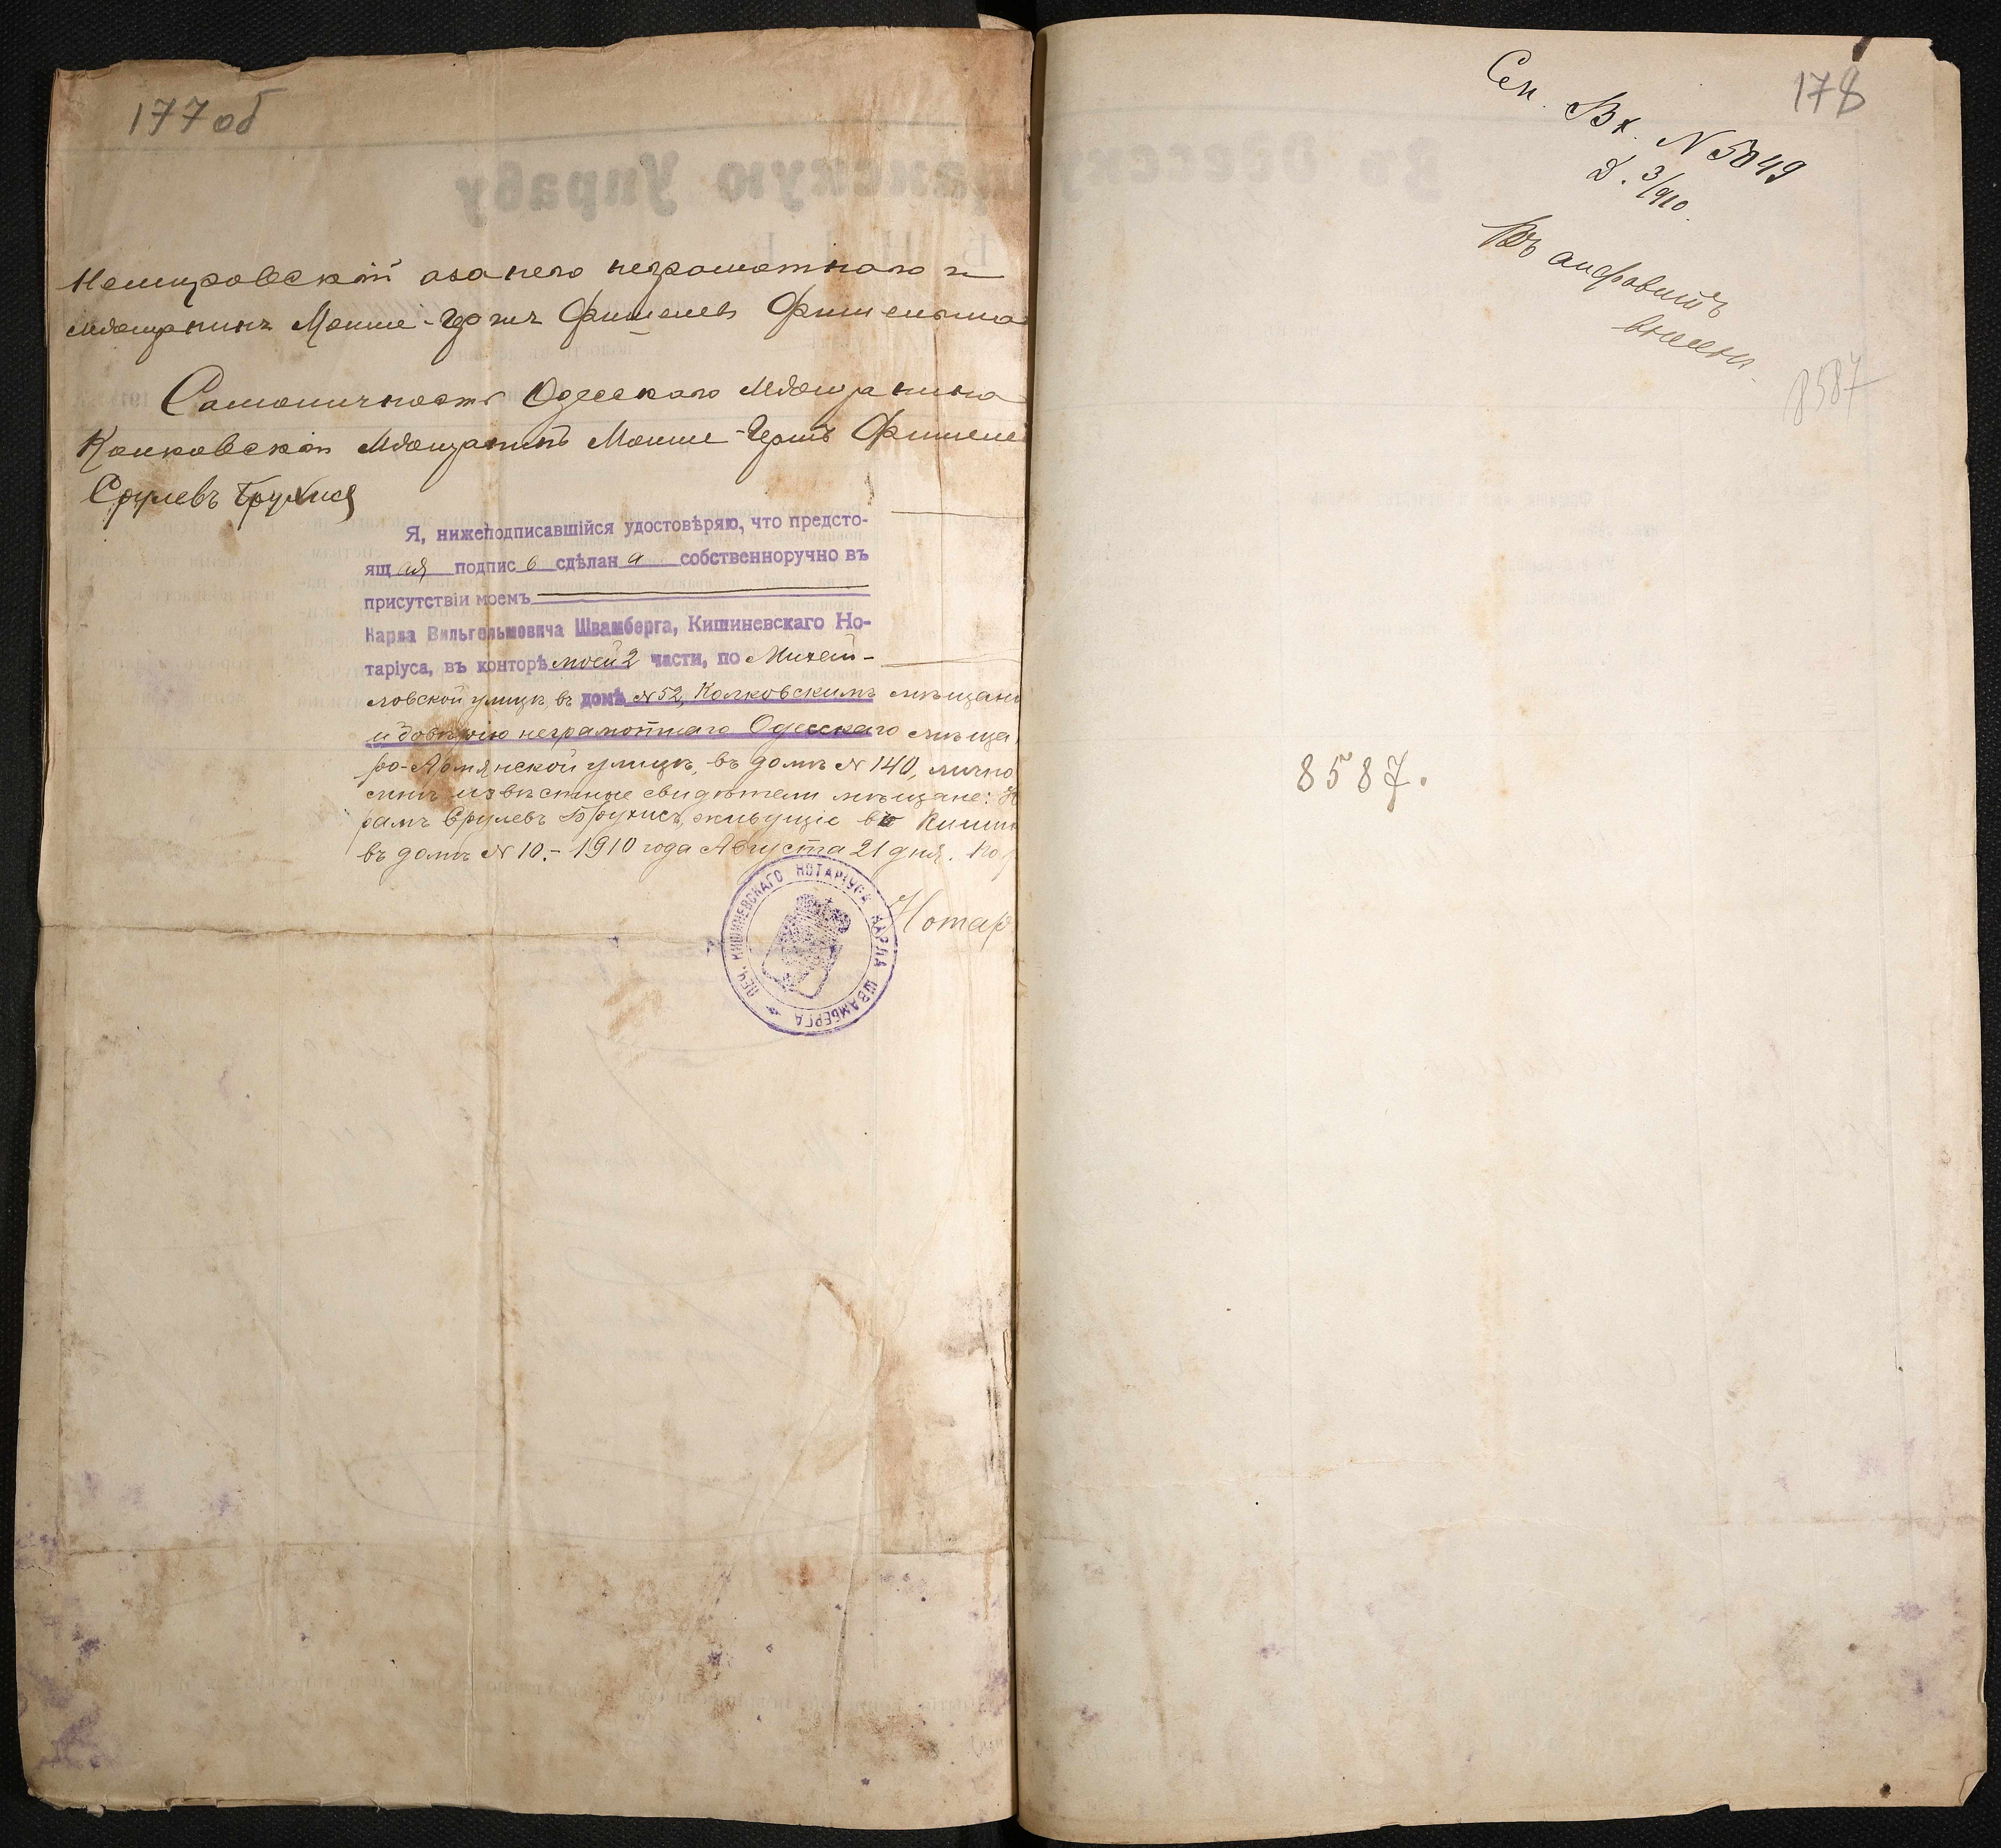 177 об
Немировскій а за него неграмотнаго и
мѣщанинъ Мошко-Герш Фишелевъ Фишельма
Самоличность Одесскаго мѣщанина
Колковскій мѣщанинъ Мошко-Гершъ Фишеле
Срулевъ Брухисъ
Я, нижеподписавшійся удостовѣряю, что предсто-
ящая подпись сдѣлана собственноручно въ
присутствіи моемъ
Карла Вильгельмовича Швамберга, Кишиневскаго Но-
таріуса, въ конторѣ моей 2 части, по Михай-
ловской улицѣ, въ домѣ № 52, Колковскимъ мѣщани
и довѣрію неграмотнаго Одесскаго мѣща
ро-Армянской улицѣ, въ домѣ № 140, лично
мнѣ извѣстные свидѣтели мѣщане:
рамъ Срулевъ Брухисъ, живущіе въ Кишин
въ домѣ № 10. – 1910 года Августа 21 дня. По
Нотар
ПЕЧ. КИШИНЕВСКАГО НОТАРІУСА КАРЛА ШВАМБЕРГА
178
Сем. Вх. N 5849
Д. 3/910.
Въ алфавитъ
внесенъ.
8587
8587.